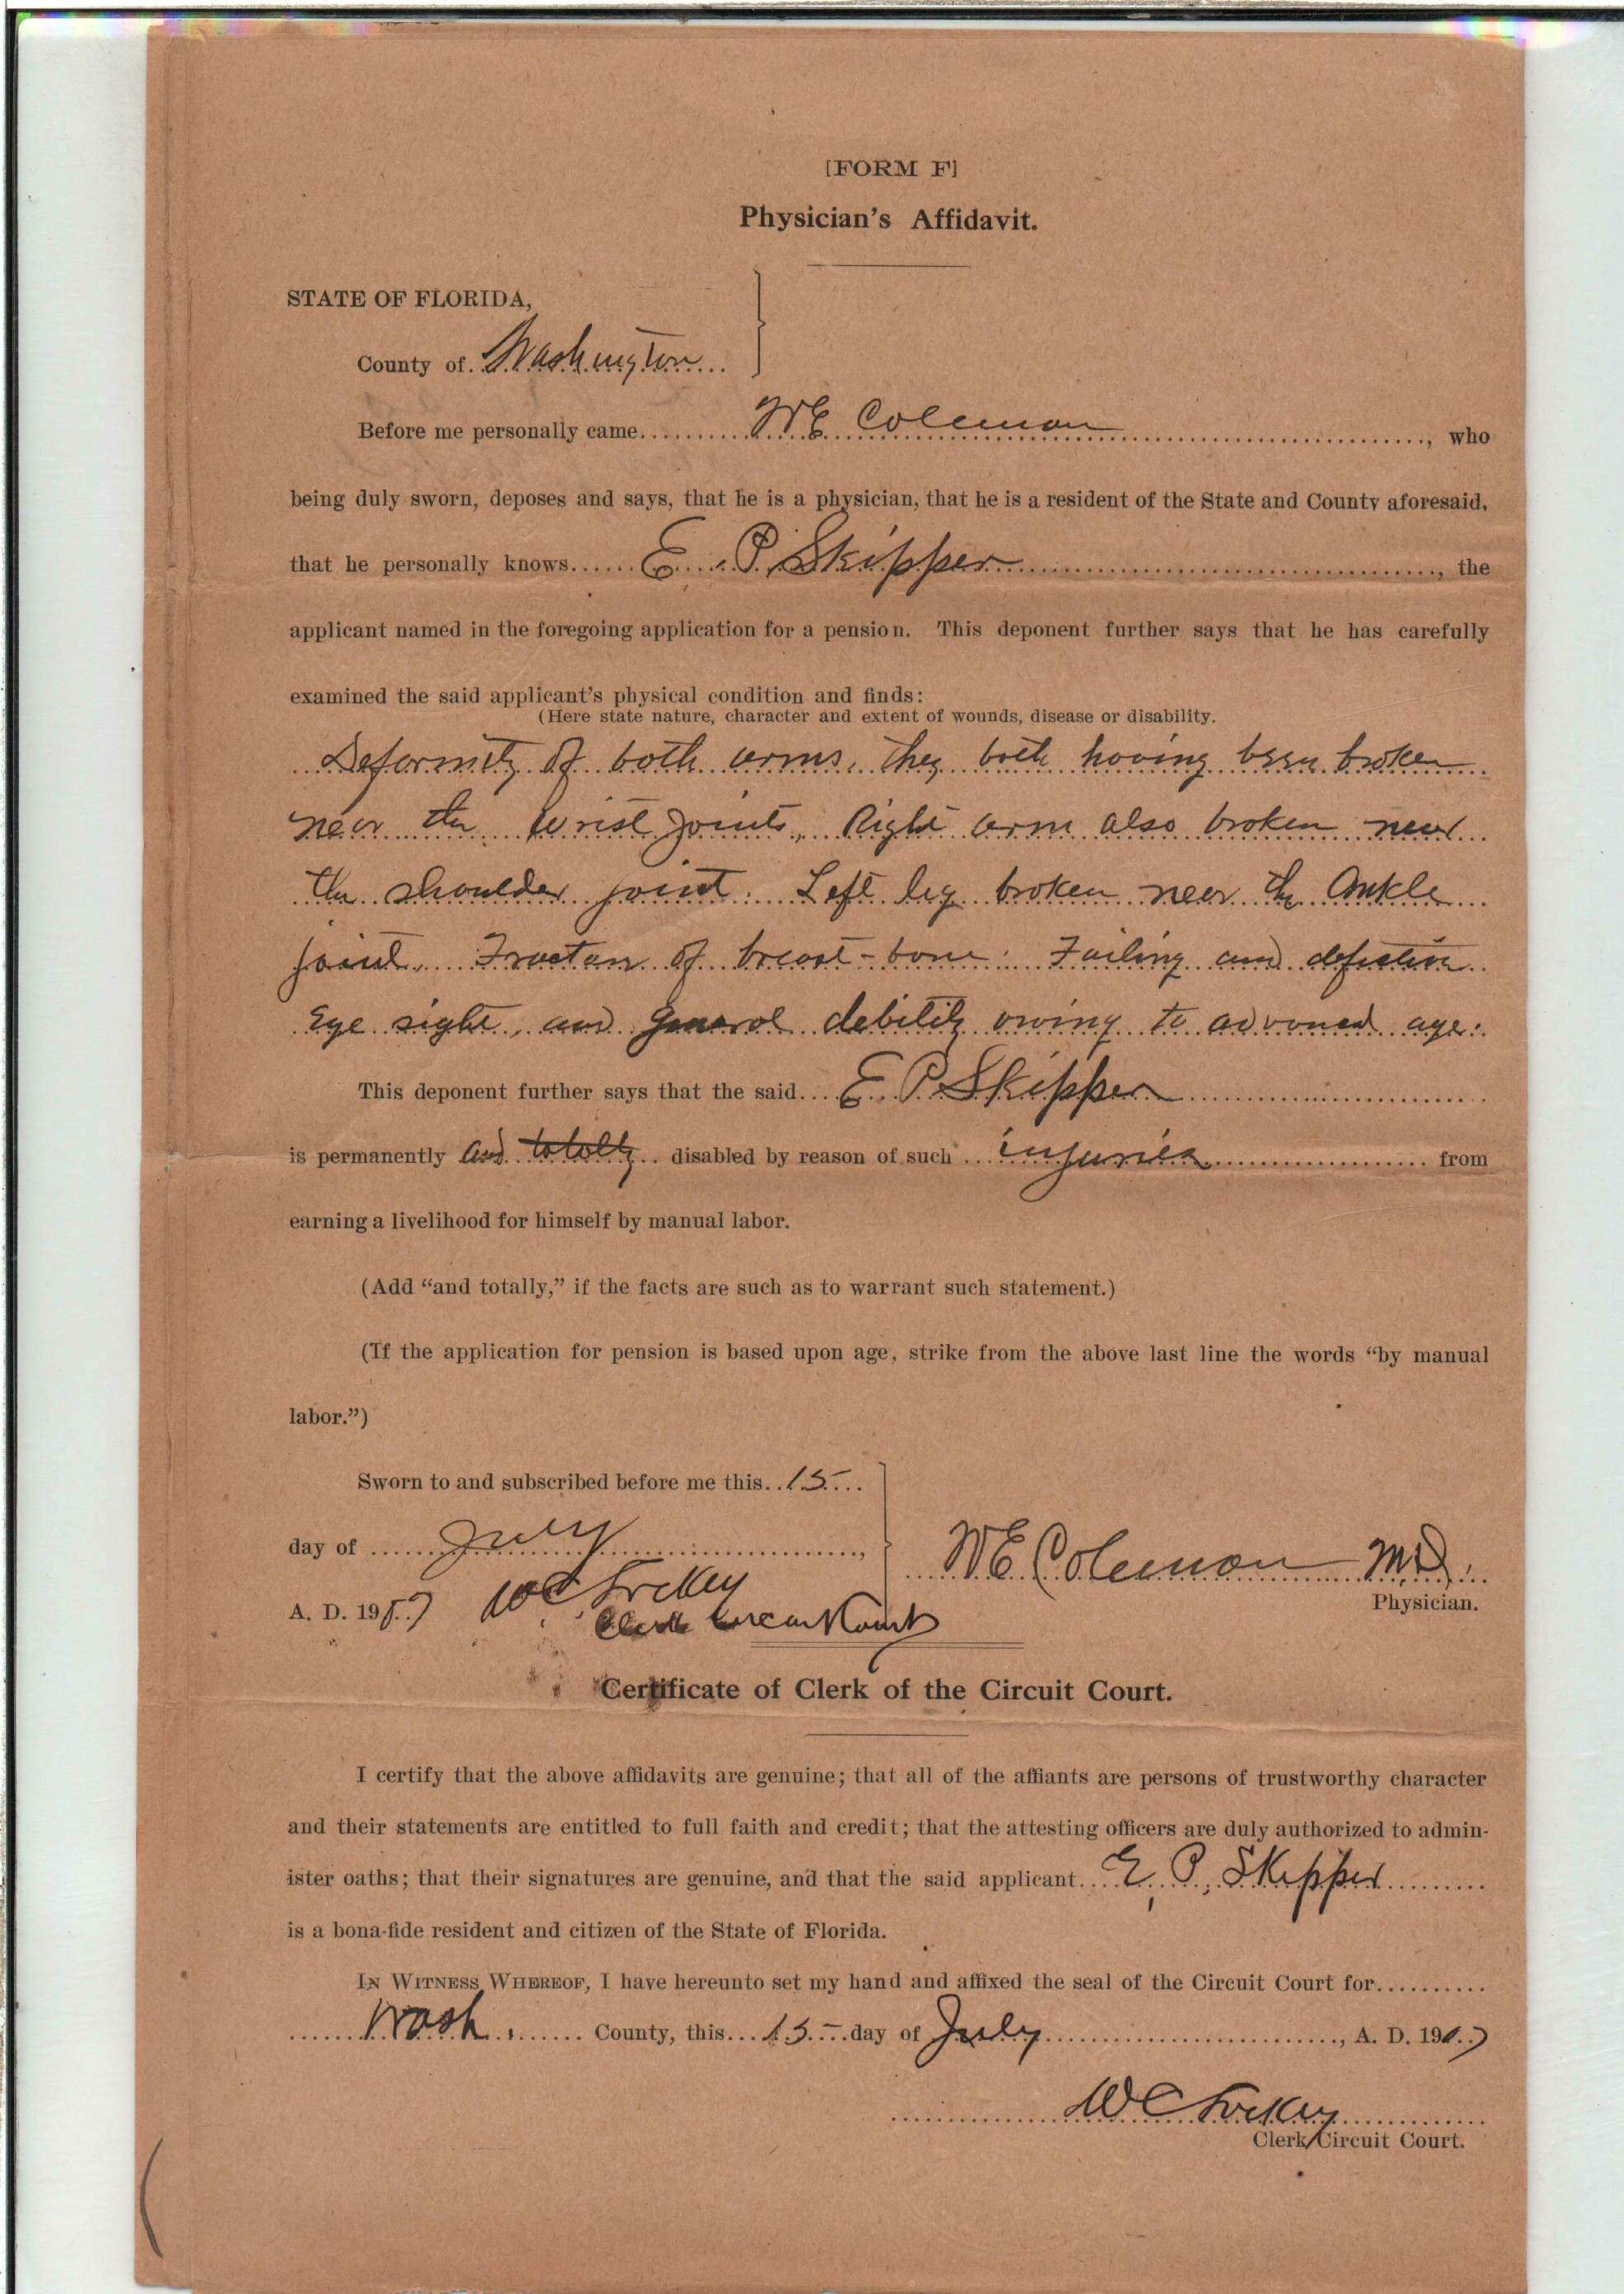 [FORM F]
Physician's Affidavit.
STATE OF FLORIDA,
County of Washington
Before me personally came W E Coleman, who
being duly sworn, deposes and says, that he is a physician, that he is a resident of the State and County aforesaid,
that he personally knows E. P. Skipper, the
applicant named in the foregoing application for a pension. This deponent further says that he has carefully
examined the said applicant's physical condition and finds:
(Here state nature, character and extent of wounds, disease or disability.
Deformity of both arms. They both having been broken
near the wrist joints. Right arm also broken near
the shoulder joint. Left leg broken near the Ankle
joint. Fracture of breast-bone. Failing and defective
Eye sight, and General debility owing to advanced age.
This deponent further says that the said E. P. Skipper
is permanently and totally disabled by reason of such injuries from
earning a livelihood for himself by manual labor.
(Add "and totally," if the facts are such as to warrant such statement.)
(If the application for pension is based upon age, strike from the above last line the words "by manual
labor.")
Sworn to and subscribed before me this 15
day of July,
A. D. 1907 W C
Clerk Circuit Court
W E Coleman M D.
Physician.
Certificate of Clerk of the Circuit Court.
I certify that the above affidavits are genuine; that all of the affiants are persons of trustworthy character
and their statements are entitled to full faith and credit; that the attesting officers are duly authorized to admin-
ister oaths; that their signatures are genuine, and that the said applicant E. P. Skipper
is a bona-fide resident and citizen of the State of Florida.
IN WITNESS WHEREOF, I have hereunto set my hand and affixed the seal of the Circuit Court for
Wash. County, this 15 day of July, A. D. 1907
W C
Clerk Circuit Court.